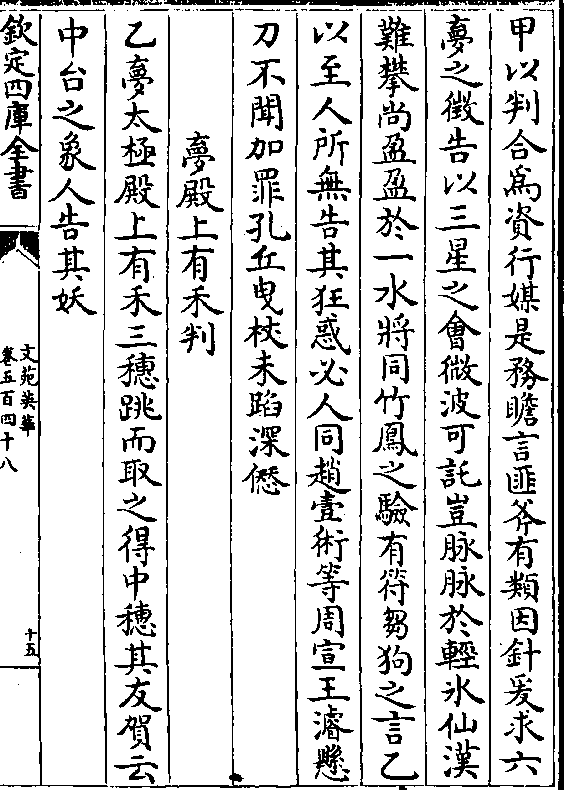 甲以判合為資行媒是務瞻言匪斧有類因針爰求六
夢之徵告以三星之會微波可託豈脉脉於輕氷仙漢
難攀尚盈盈於一水將同竹鳳之驗有符芻狗之言乙
以至人所無告其狂惑必人同趙壹術等周宣王濬懸
刀不聞加罪孔丘曳杖未蹈深僁
夢殿上有禾判
乙夢太極殿上有禾三穗跳而取之得中穗其友賀云
中台之象人告其妖
欽定四庫全書
文苑英華
卷五百四十八
十五